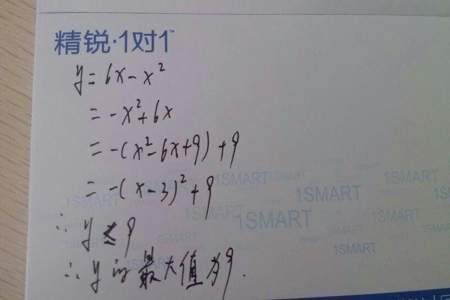 精锐·1对1
y=6x-x²
=-x²+6x
=-(x²-6x+9)+9
=-(x-3)²+9
∴ y≤9
∴ y的最大值为9.
1SMART
1SMART
1SMART
1SMART
1SMART